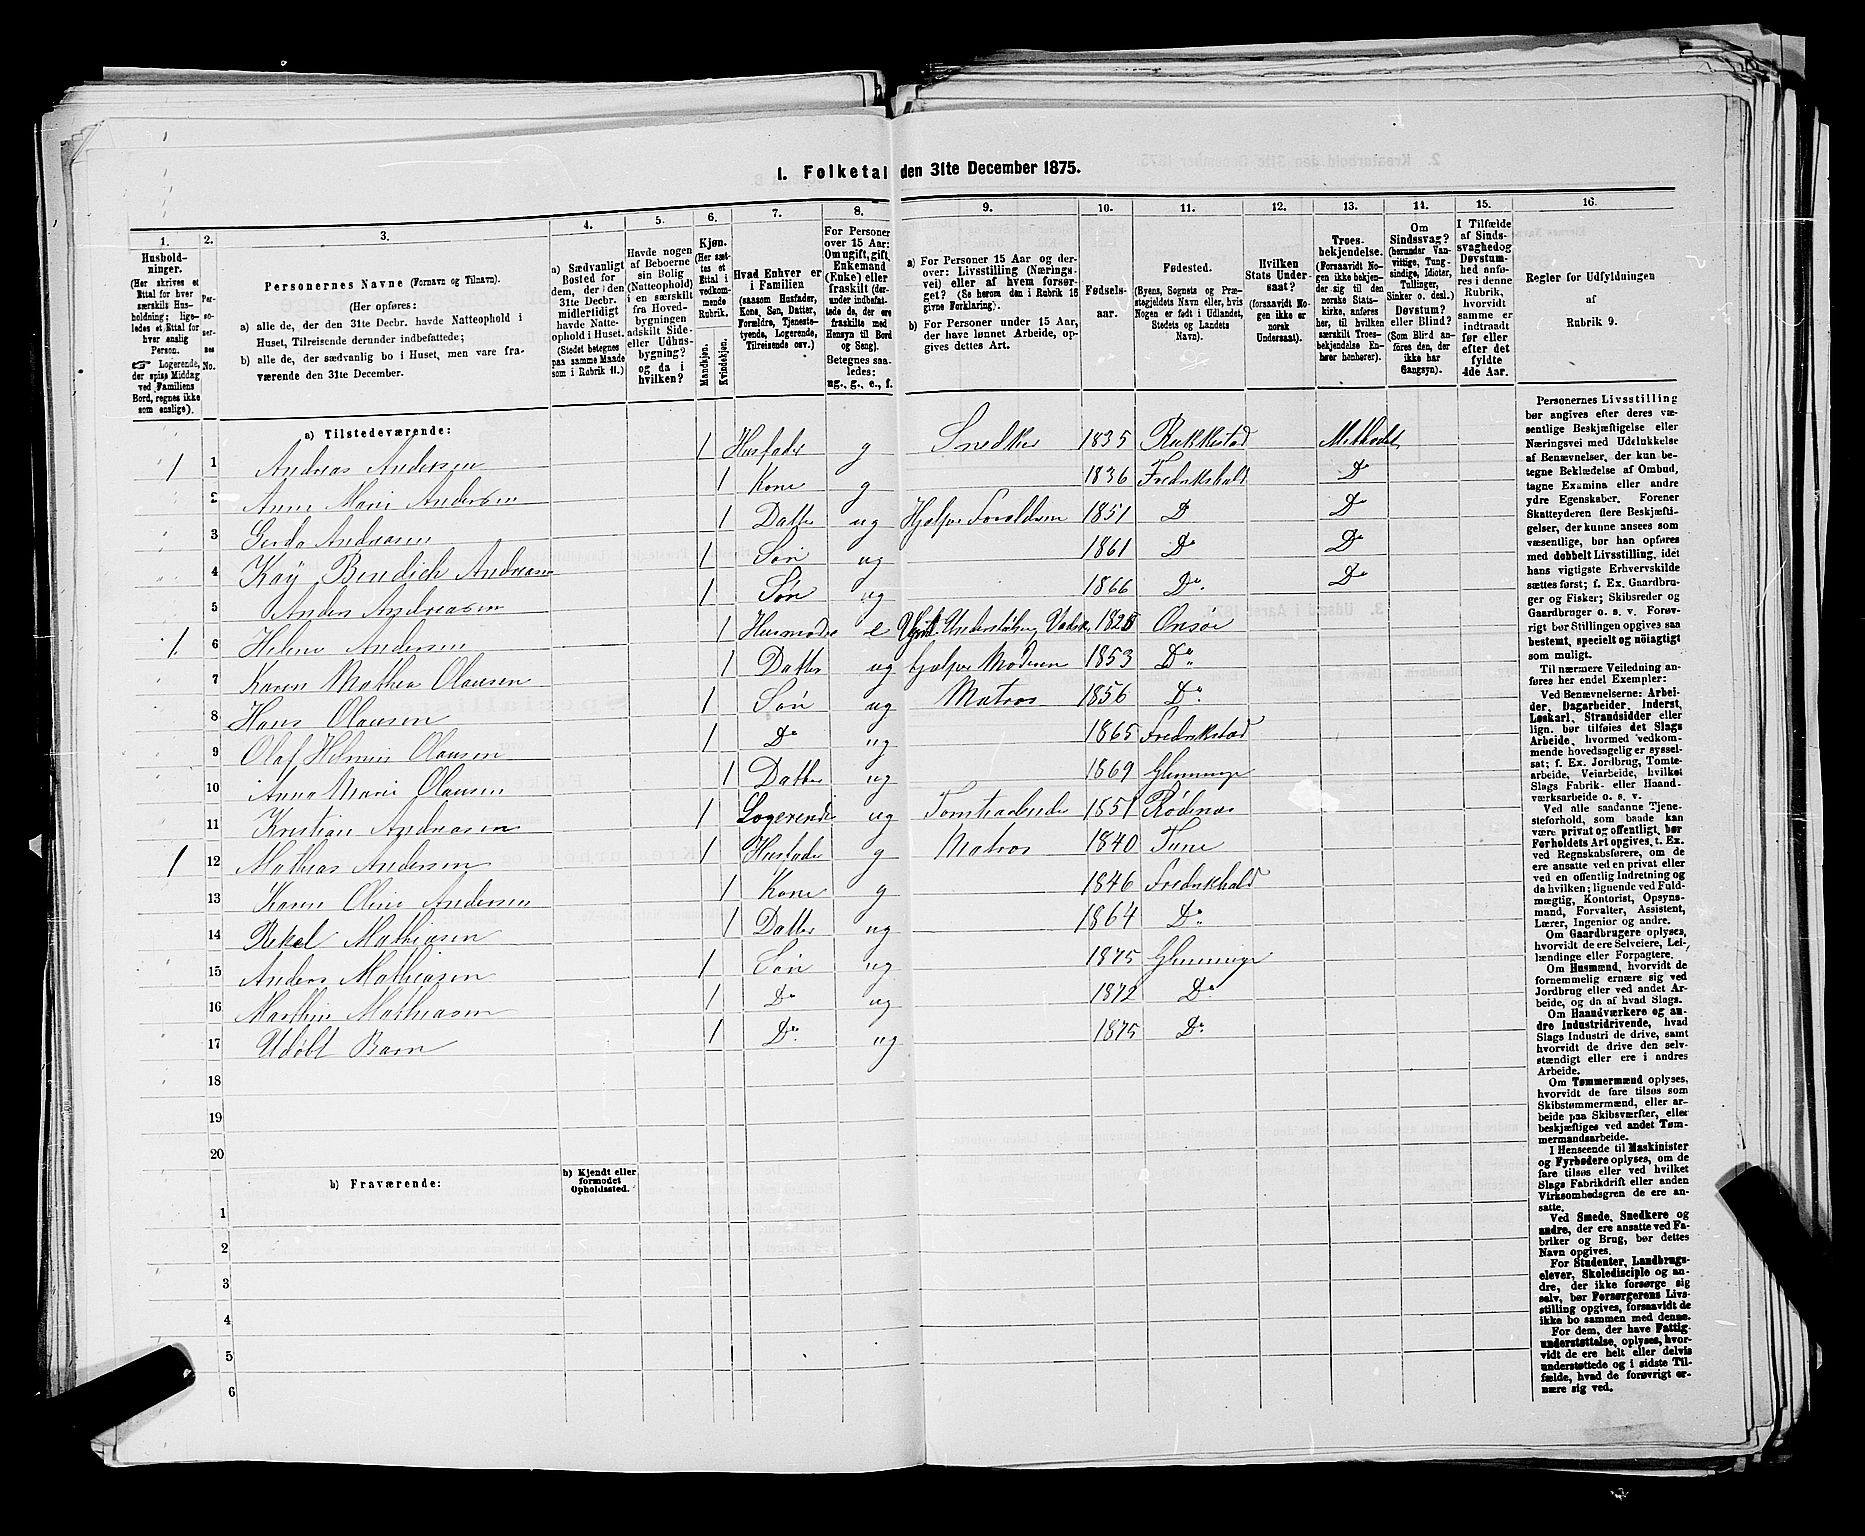 1. Folketal den 31te December 1875.
1. 2. 3. 4. 5. 6. 7. 8. 9. 10. 11. 12. 13. 14. 15. 16.
Hushold-
ninger.
(Her skrives et
Ettal for hver
særskilt Hus-
holdning; lige-
ledes et Ettal for
hver enslig
Person.
☞ Logerende,
der spise Middag
ved Familiens
Bord, regnes ikke
som enslige).
Per-
so-
ner-
nes
No.
Personernes Navne (Fornavn og Tilnavn).
(Her opføres:
a) alle de, der den 31te Decbr. havde Natteophold i
Huset, Tilreisende derunder indbefattede;
b) alle de, der sædvanlig bo i Huset, men vare fra-
værende den 31te December.
a) Sædvanligt
Bosted for
dem, der den
31te Decbr.
midlertidigt
havde Natte-
ophold i Huset.
(Stedet betegnes
paa samme Maade
som i Rubrik 11.)
Havde nogen
af Beboerne
sin Bolig
(Natteophold)
i en særskilt
fra Hoved-
bygningen
adskilt Side-
eller Udhus-
bygning?
og da i
hvilken?
Kjøn.
(Her sæt-
tes et
Ettal i
vedkom-
mende
Rubrik.
Mandkjøn.
Kvindekjøn.
Hvad Enhver er
i Familien
(saasom Husfader,
Kone, Søn, Datter,
Forældre, Tjeneste-
tyende, Logerende,
Tilreisende osv.)
For Personer
over 15 Aar:
Om ugift, gift,
Enkemand
(Enke) eller
fraskilt (der-
under indbefat-
tede de, der ere
fraskilte med
Hensyn til Bord
og Seng).
Betegnes saa-
ledes:
ug., g., e., f.
a) For Personer 15 Aar og der-
over: Livsstilling (Nærings-
vei) eller af hvem forsør-
get? (Se herom den i Rubrik 16
givne Forklaring).
b) For Personer under 15 Aar,
der have lønnet Arbeide, op-
gives dettes Art.
Fødsels-
aar.
Fødested.
(Byens, Sognets og Præ-
stegjeldets Navn eller, hvis
Nogen er født i Udlandet,
Stedets og Landets
Navn).
Hvilken
Stats Under-
saat?
(forsaavidt No-
gen ikke er
norsk
Undersaat).
Troes-
bekjendelse.
(Forsaavidt No-
gen ikke bekjen-
der sig til den
norske Stats-
kirke, anføres
her, til hvilken
særskilt Troes-
bekjendelse En-
hver henhører).
Om
Sindssvag?
(herunder Van-
vittige, Tung-
sindige, Idioter,
Tullinger,
Sinker o. desl.)
Døvstum?
eller Blind?
(Som Blind an-
føres den, der
ikke har
Gangsyn).
I Tilfælde
af Sinds-
svaghed og
Døvstum-
hed anfø-
res i denne
Rubrik,
hvorvidt
samme er
indtraadt
før eller
efter det
fyldte
4de Aar.
Regler for Udfyldningen
af
Rubrik 9.
a) Tilstedeværende:
1 1 Andreas Andersen 1 Husfader g Snedker 1835 Rakkestad Methodst
2 Anne Marie Andersen 1 Kone g 1836 Fredrikshald Do
3 Gerda Andreasen 1 Datter ug Hjælper Forældrene 1851 D Do
4 Kaÿ Bendich Andreasen 1 Søn ug 1861 Do Do
5 Anders Andreasen 1 Søn ug 1866 Do. Do
1 6 Helene Andersen 1 Husmoder e Understøttes 182 Onsøe
7 Karen Mathea Olausen 1 Datter ug hjælper Moderen 1853 Do
8 Hans Olausen 1 Søn ug Matros 1856 Do
9 Olaf Olausen 1 Do ug 1865 Fredrikstad
10 Anna Marie Olausen 1 Datter ug 1869 Glemminge
11 Kristian Andreasen 1 Logerende ug Tomtearbeide 1851 Rødenæs
1 12 Mathias Andersen 1 Husfader g Matros 1840 Tune
13 Karen Oline Andersen 1 Kone g 1846 Fredrikhald
14 Rekel Mathiasen 1 Datter ug 1864 Do.
15 Anders Mathiasen 1 Søn ug 1875 Glemminge
16 Marthin Mathiasen 1 Do ug 1872 Do
17 Udøbt Barn 1 Do. ug 1875 Do.
18
19
20
b) Fraværende:
b) Kjendt eller
formodet
Opholdssted.
1
2
3
4
5
6
Personernes Livsstilling
bør angives efter deres væ-
sentlige Beskjæftigelse eller
Næringsvei med Udelukkelse
af Benævnelser, der kun be-
tegne Beklædelse af Ombud,
tagne Examina eller andre
ydre Egenskaber. Forener
Skatteyderen flere Beskjæfti-
gelser, der kunne ansees som
væsentlige, bør han opføres
med dobbelt Livsstilling, idet
hans vigtigste Erhvervskilde
sættes først; f. Ex. Gaardbru-
ger og Fisker; Skibsreder og
Gaardbruger o. s. v. Forøv-
rigt bør Stillingen opgives saa
bestemt, specielt og nöiagtigt
som muligt.
Til nærmere Veiledning an-
føres her endel Exempler:
Ved Benævnelserne: Arbei-
der, Dagarbeider, Inderst,
Løskarl, Strandsidder eller
lign. bør tilføies det Slags
Arbeide, hvormed vedkom-
mende hovedsagelig er syssel-
sat; f. Ex. Jordbrug, Tomte-
arbeide, Veiarbeide, hvilket
Slags Fabrik- eller Haand-
værksarbeide o. s. v.
Ved alle saadanne Tjene-
steforhold, som baade kan
være privat og offentligt, bør
Forholdets Art opgives, t. Ex.
ved Regnskabsførere, om de
ere ansatte i en privat eller
ved en offentlig Indretning og
da hvilken; lignende ved Fuld-
mægtig, Kontorist, Opsyns-
mand, Forvalter, Assistent,
Lærer, Ingeniør og andre.
Om Gaardbrugere oplyses,
hvorvidt de ere Selveiere, Lei-
lændinge eller Forpagtere.
Om Husmænd, hvorvidt de
fornemmelig ernære sig ved
Jordbrug eller ved andet Ar-
beide, og da af hvad Slags.
Om Haandværkere og an-
dre Industridrivende, hvad
Slags Industri de drive, samt
hvorvidt de drive den selv-
stændigt eller ere i andres
Arbeide.
Om Tømmermænd oplyses,
hvorvidt de fare tilsøs som
Skibstømmermænd, eller ar-
beide paa Skibsværfter, eller
beskjæftiges ved andet Tøm-
mermandsarbeide.
I Henseende til Maskinister
og Fyrbødere oplyses, om de
fare tilsøs eller ved hvilket
Slags Fabrikdrift eller anden
Virksomhedsgren de ere an-
satte.
Ved Smede, Snedkere og
andre, der ere ansatte ved Fa-
briker og Brug, bør dettes
Navn opgives.
For Studenter, Landbrugs-
elever, Skoledisciple og an-
dre, der ikke forsørge sig
selv, bør Forsørgerens Livs-
stilling opgives, forsaavidt de
ikke bo sammen med denne.
For dem, der have Fattig-
understøttelse, oplyses, hvor-
vidt de ere helt eller delvis
understøttede og i sidste Til-
fælde, hvad de forøvrigt er-
nære sig ved.